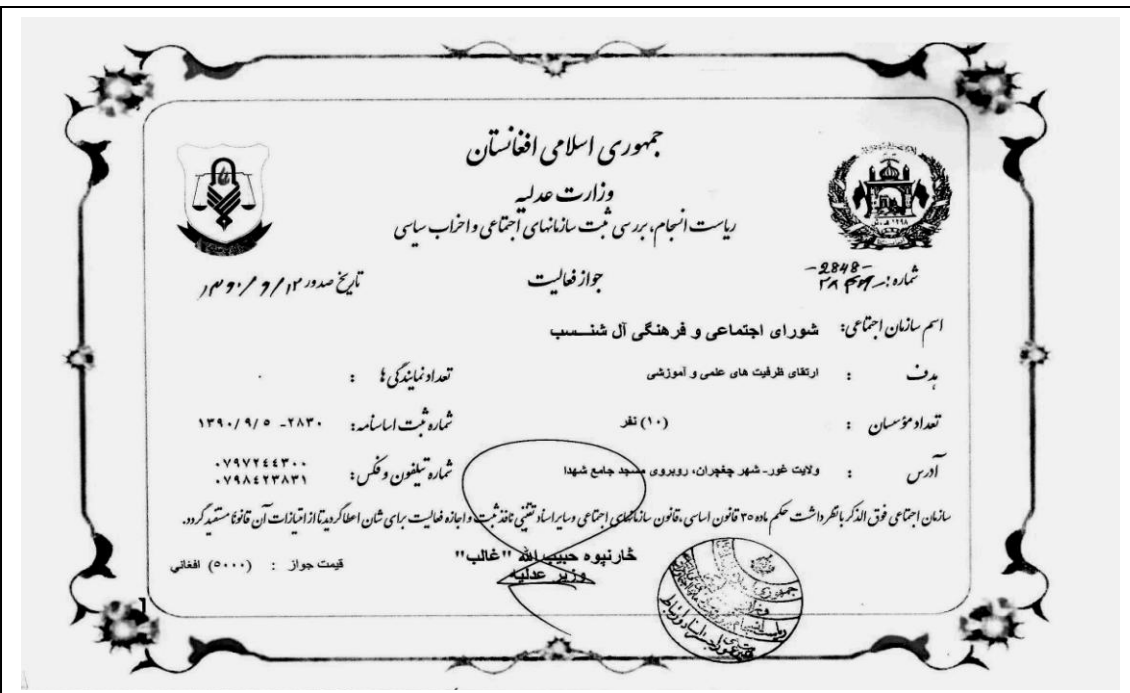 جمهوری اسلامی افغانستان
وزارت عدلیه
ریاست انسجام، بررسی ثبت سازمانهای اجتماعی و احزاب سیاسی
شماره: -2848-
جواز فعالیت
تاریخ صدور ۱۳۹۰/۹/۱۲
اسم سازمان اجتماعی: شورای اجتماعی و فرهنگی آل شنسب
هدف : ارتقای ظرفیت های علمی و آموزشی تعداد نمایندگی ها : ۰
تعداد مؤسسان : (۱۰) نفر شماره ثبت اساسنامه: ۲۸۳۰- ۱۳۹۰/۹/۵
آدرس : ولایت غور- شهر چغچران، روبروی مسجد جامع شهدا شماره تیلفون و فکس: ۰۷۹۷۲۴۴۳۰۰
۰۷۹۸۴۲۳۸۳۱
سازمان اجتماعی فوق الذکر با نظر داشت حکم ماده ۳۵ قانون اساسی، قانون سازمانهای اجتماعی و سایر اسناد تقنینی نافذ ثبت و اجازه فعالیت برای شان اعطا گردید تا از امتیازات آن قانونا مستفید گردد.
څارنپوه حبیب الله "غالب"
وزیر عدلیه
قیمت جواز : (۵۰۰۰) افغانی